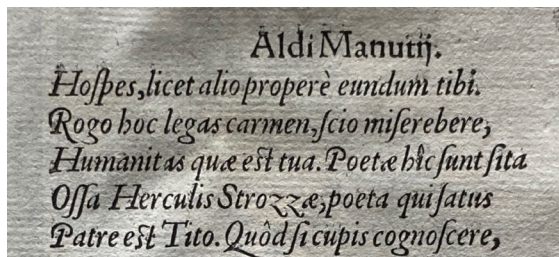 Aldi Manutij.
Hoſpes, licet alio properè eundum tibi.
Rogo hoc legas carmen, ſcio miſerebere,
Humanitas quæ eſt tua. Poetæ hîc ſunt ſita
Oſſa Herculis Strozzæ, poeta qui ſatus
Patre eſt Tito. Quôd ſi cupis cognoſcere,